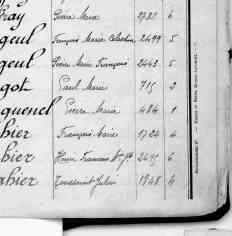 Pierre Marie 2721 6
geul François Marie Celestin 2499 5
geul Pierre Marie François 2443 5
got Paul Marie 715 2
quenel Pierre Marie 484 1
hier François Marie 1724 4
hier Henri Francois 2615 6
hier Toussaint Julien 1748 4